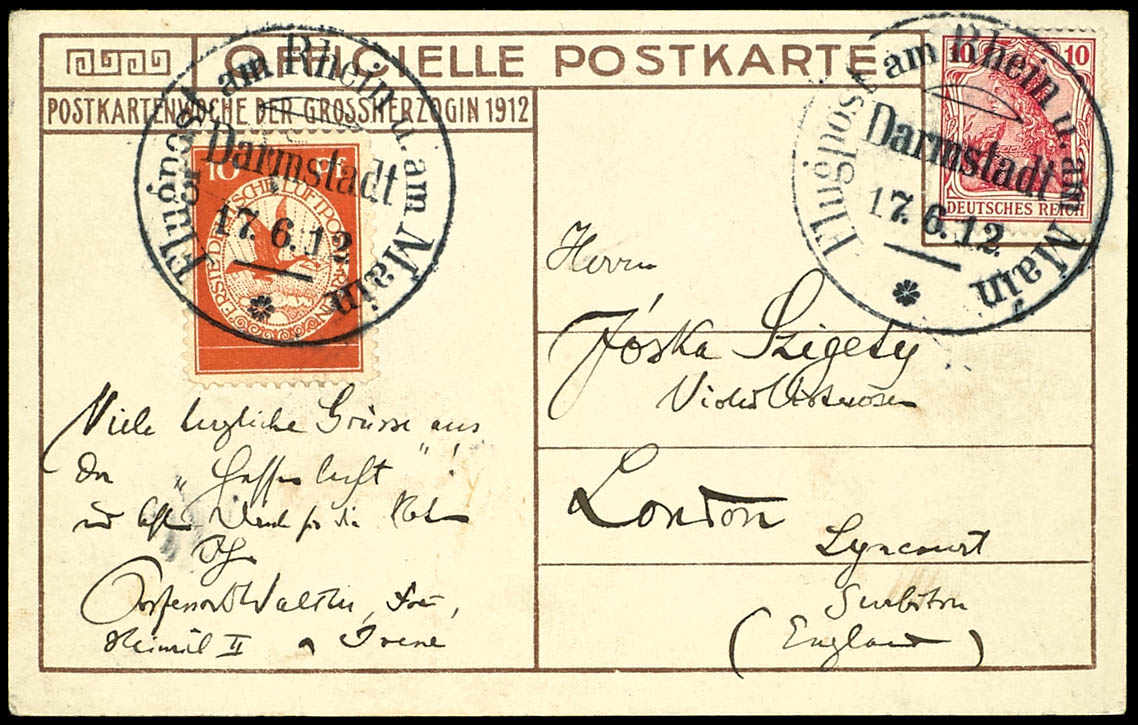 OFFICIELLE POSTKARTE
POSTKARTENWOCHE DER GROSSHERZOGIN 1912
10 Pf
ERSTE DEUTSCHE LUFTPOST AM RHEIN
Flugpost am Rhein u. am Main
Darmstadt
17.6.12
Viele herzliche Grüsse aus
der
für die
Professor Walter,
Heinrich II Irene
10 10
DEUTSCHES REICH
Flugpost am Rhein u. am Main
Darmstadt
17.6.12.
Herrn
Jóska Szigety
London
Lyncourt
Surbiton
(England)